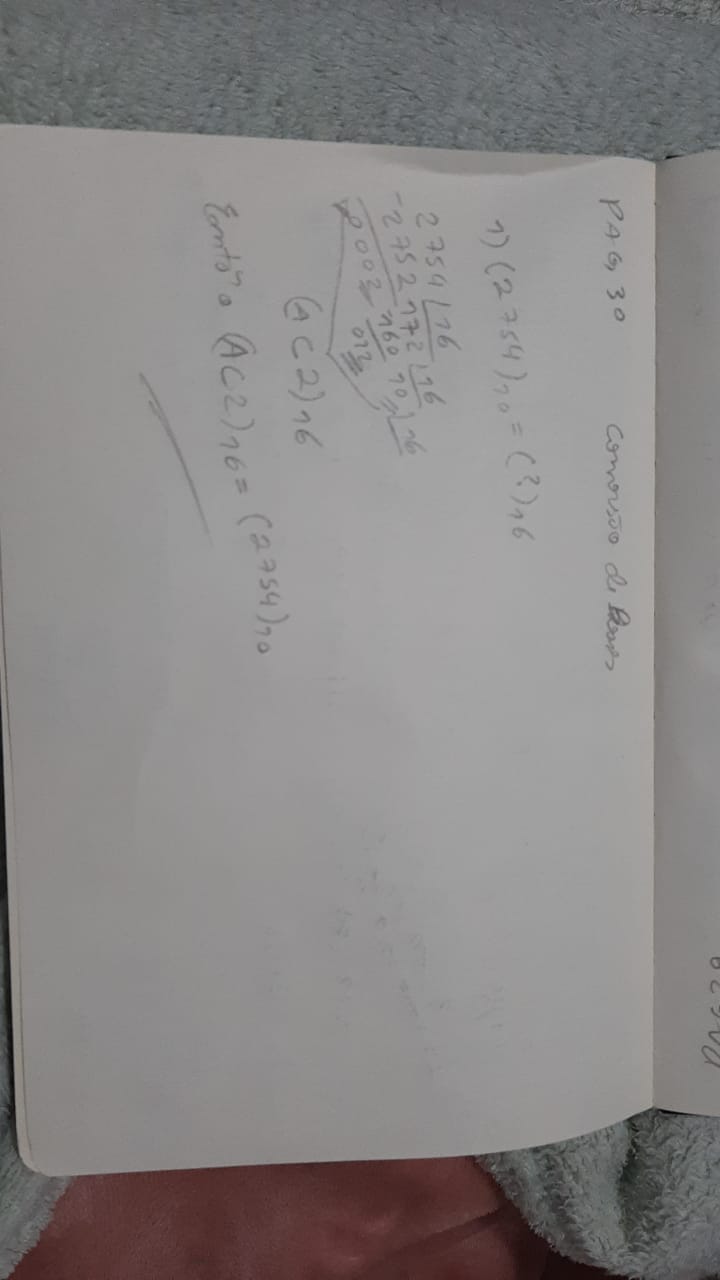 PAG, 30 Conversão de Bases
1) (2754)10 = (?)16
2754 16
-2752 172 16
0002 160 10 16
012
(AC2)16
Então (AC2)16 = (2754)10